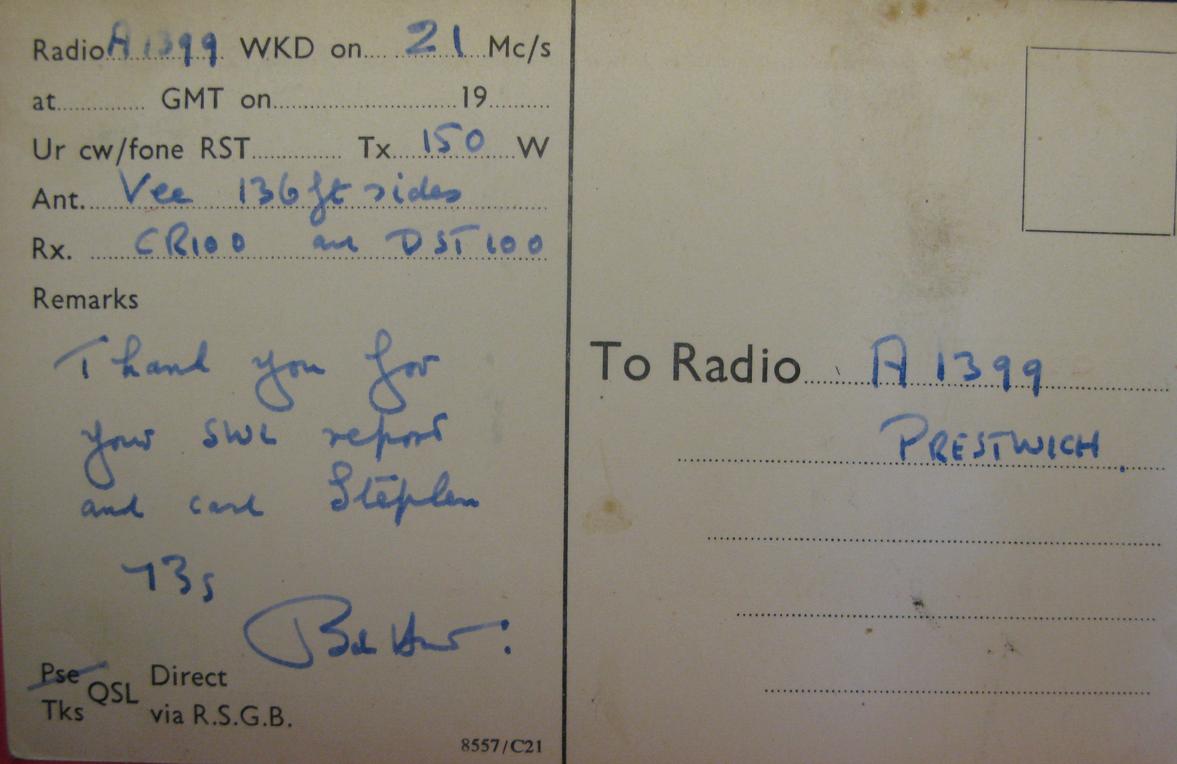 Radio A1399 WKD on 21 Mc/s
at GMT on 19
Ur cw/fone RST Tx 150 W
Ant. Vee 136ft sides
Rx. CR100 and DST100
Remarks
Thank you for
your SWL report
and card Stephen
73s
Bob
Pse
Tks QSL Direct
via R.S.G.B.
8557/C21
To Radio A 1399
PRESTWICH.